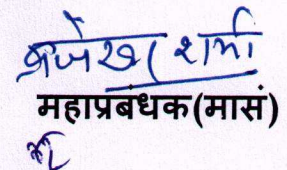 ब्रजेश शर्मा
महाप्रबंधक(मासं)